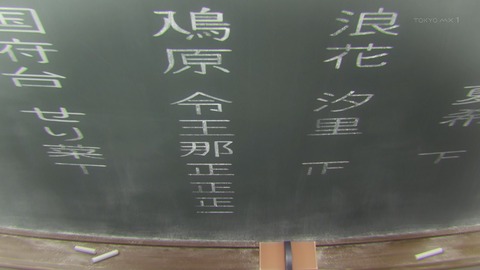 TOKYO MX 1
夏希
浪花 汐里
鳰原 令王那 正正正
国府台 せり菜 丅